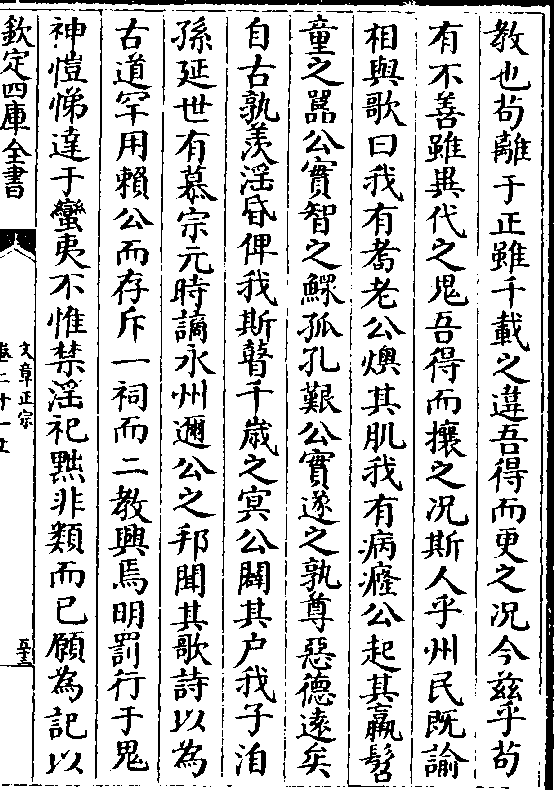 教也苟離于正雖千載之違吾得而更之况今兹乎苟
有不善雖異代之鬼吾得而攘之况斯人乎州民既諭
相與歌曰我有耉老公燠其肌我有病癃公起其羸髫
童之嚚公實智之鰥孤孔艱公實遂之孰尊惡德逺矣
自古孰羡淫昏俾我斯瞽千嵗之㝠公闢其户我子洎
孫延世有慕宗元時謫永州邇公之邦聞其歌詩以為
古道罕用賴公而存斥一祠而二教興焉明罰行于鬼
神愷悌達于蠻夷不惟禁淫祀黜非類而已願為記以
欽定四庫全書
文章正宗
卷二十一上